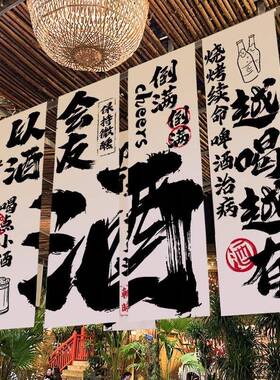 以酒
喝点小酒
会友
保持微醺
倒满
cheers
倒满
酒
越喝越有
烧烤续命啤酒治病